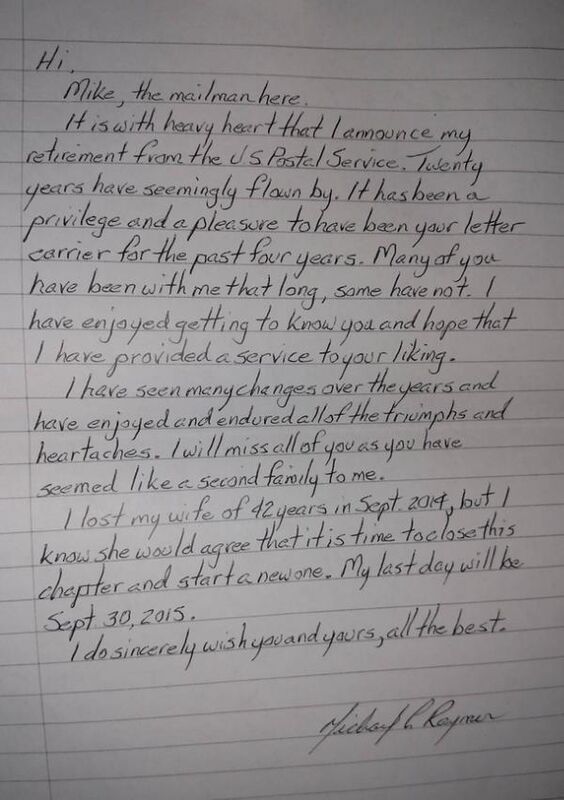 Hi,
Mike, the mailman here.
It is with heavy heart that I announce my
retirement from the US Postal Service. Twenty
years have seemingly flown by. It has been a
privilege and a pleasure to have been your letter
carrier for the past four years. Many of you
have been with me that long, some have not. I
have enjoyed getting to know you and hope that
I have provided a service to your liking.
I have seen many changes over the years and
have enjoyed and endured all of the triumphs and
heartaches. I will miss all of you as you have
seemed like a second family to me.
I lost my wife of 42 years in Sept. 2014, but I
know she would agree that it is time to close this
chapter and start a new one. My last day will be
Sept 30, 2015.
I do sincerely wish you and yours, all the best.
Michael